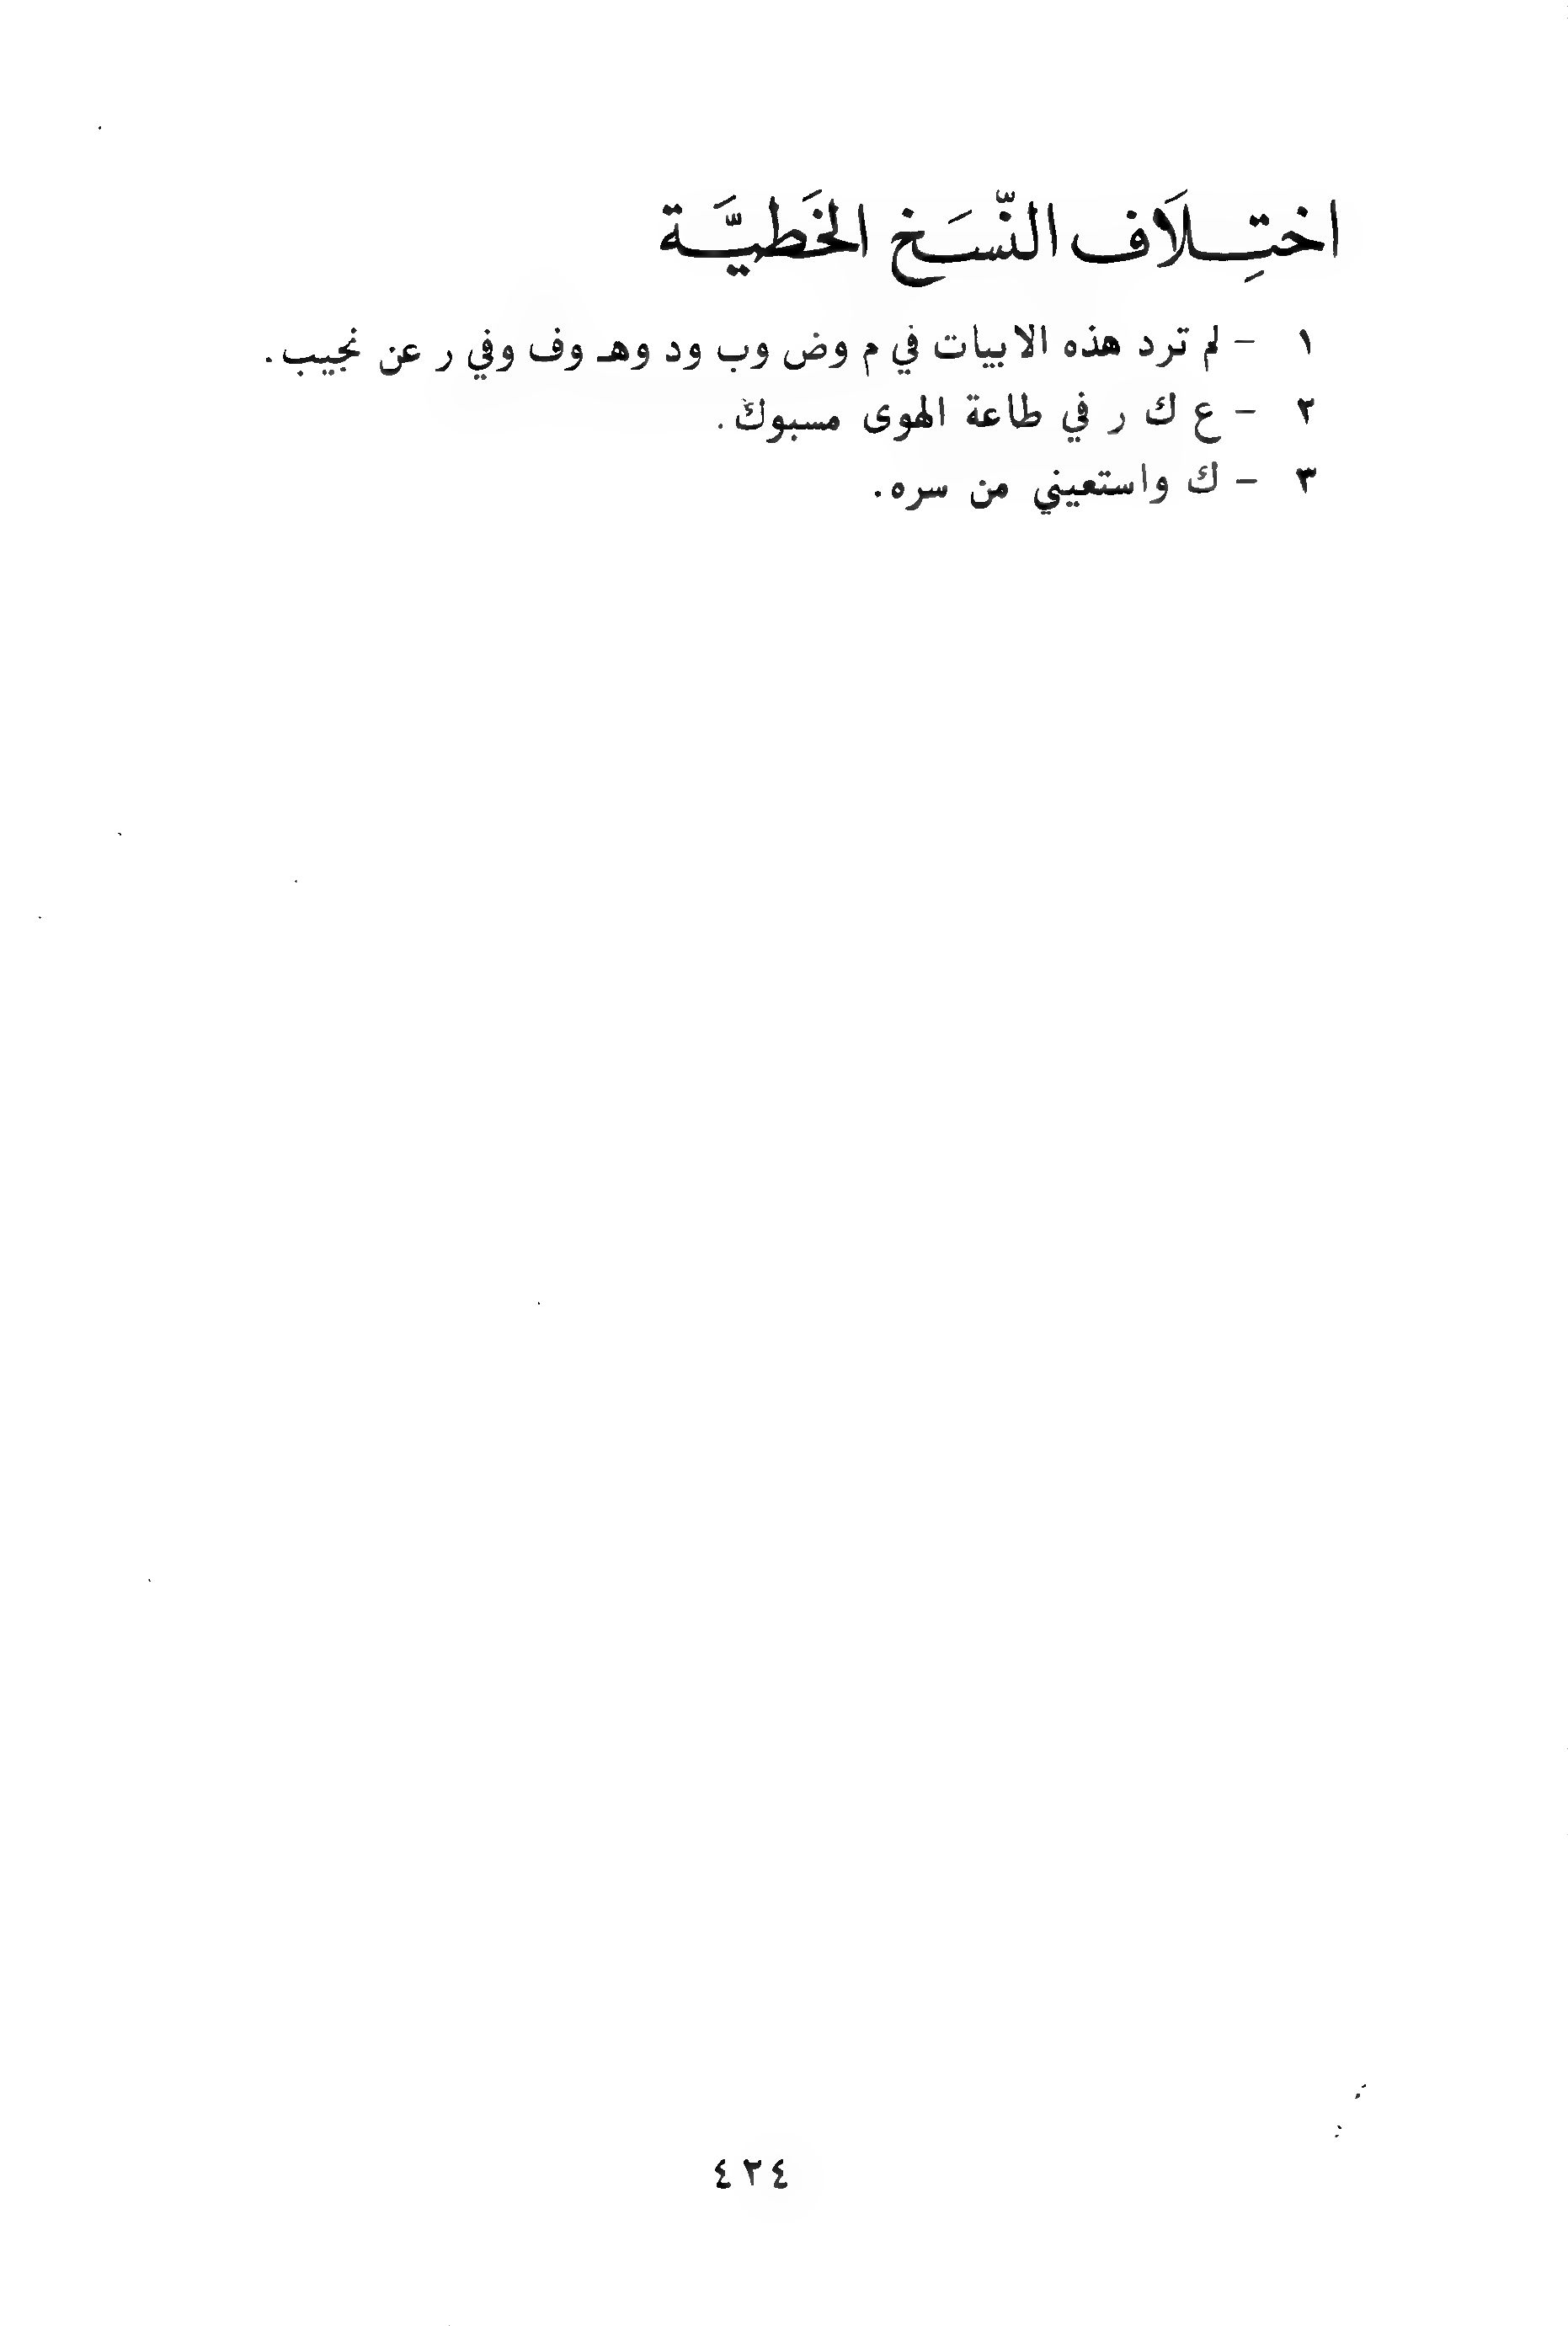 اختِلَاف النّسَخ الخَطيَّة
١ - لم ترد هذه الابيات في م وض وب ود وهـ وف وفي ر عن نجيب.
٢ - ع ك ر في طاعة الهوى مسبوك.
٣ - ك واستعيني من سره.
٤٢٤